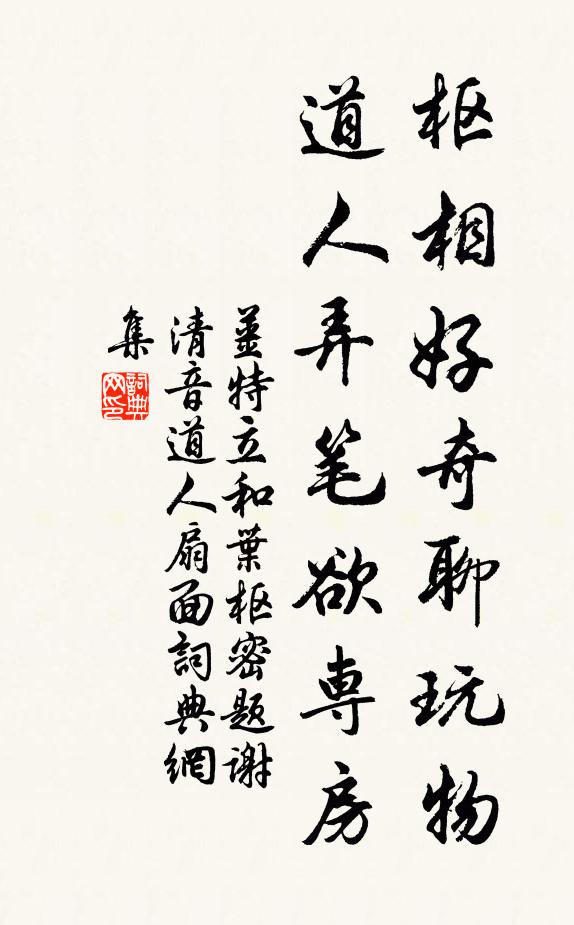 枢相好奇聊玩物
道人弄笔欲専房
姜特立和葉枢密题谢
清音道人扇面詞典網
集
詞典网印